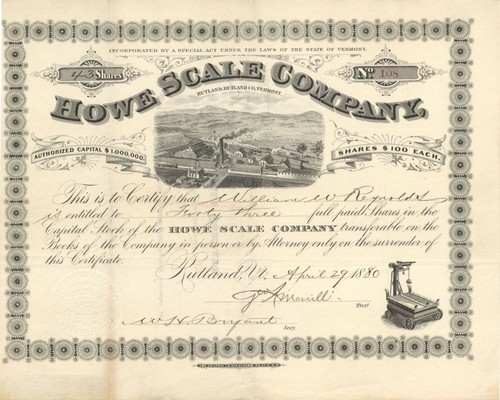 INCORPORATED BY A SPECIAL ACT UNDER THE LAWS OF THE STATE OF VERMONT.
43 Shares
No 108
HOWE SCALE COMPANY,
RUTLAND, RUTLAND CO., VERMONT.
AUTHORIZED CAPITAL $1,000,000.
SHARES $100 EACH.
This is to Certify that William W Reynolds
is entitled to Forty three full paid Shares, in the
Capital Stock of the HOWE SCALE COMPANY transferable on the
Books of the Company in person or by Attorney only on the surrender of
this Certificate.
Rutland, Vt. April 29 1880
J A Merrill
Prest
W H Bryant
Secy.